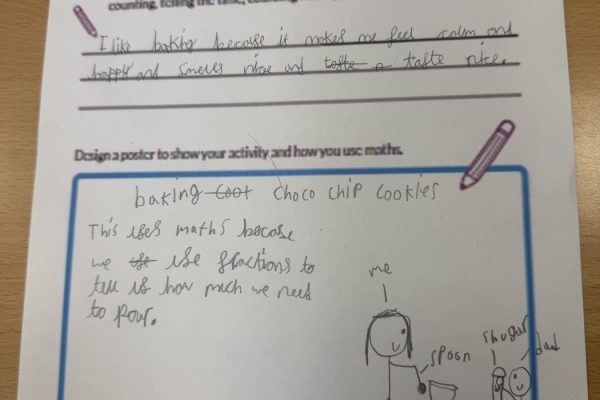 counting, telling the time,
I like baking because it makes me feel calm and
happy and smells nice and taste n taste nice.
Design a poster to show your activity and how you use maths.
baking coot choco chip cookies
This uses maths becose
we use use fractions to
tell us how much we need
to pour.
me
spoon
shugar
dad